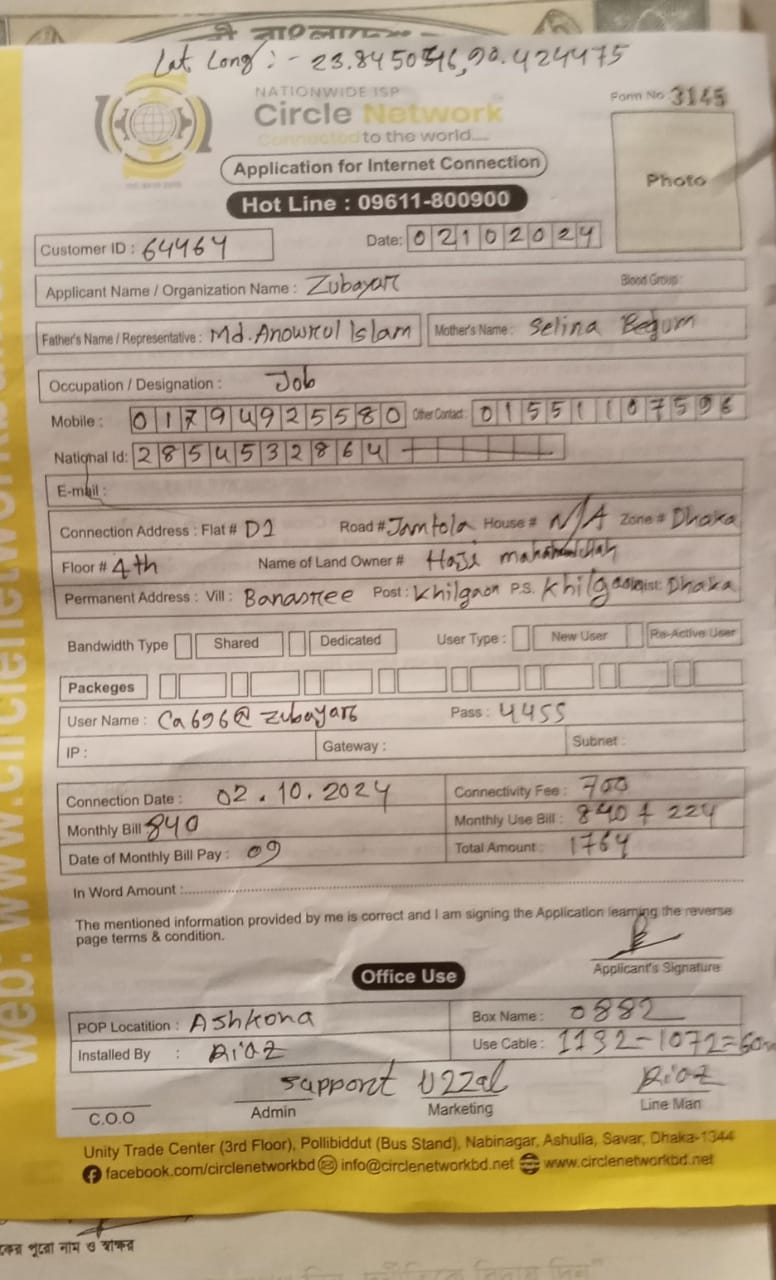 Lat Long :- 23.8450546,90.424475
NATIONWIDE ISP
Circle Network
Connected to the world....
Form No 3145
Application for Internet Connection
Photo
Hot Line : 09611-800900
Customer ID : 64464
Date: 02102024
Applicant Name / Organization Name : Zubayar
Blood Group :
Father's Name / Representative : Md. Anowrul Islam Mother's Name : Selina Begum
Occupation / Designation : Job
Mobile : 01794925580 Other Contact : 01551107596
National Id: 2854532864
E-mail :
Connection Address : Flat # D1 Road # Jamtola House # N/A Zone # Dhaka
Floor # 4th Name of Land Owner # Haji
Permanent Address : Vill : Banasree Post : Khilgaon P.S. Khilgaon Dist: Dhaka
Bandwidth Type Shared Dedicated User Type : New User Re-Active User
Packeges
User Name : Ca696@zubayar6 Pass : 4455
IP : Gateway : Subnet :
Connection Date : 02.10.2024 Connectivity Fee : 700
Monthly Bill 840 Monthly Use Bill : 840 + 224
Date of Monthly Bill Pay : 09 Total Amount : 1764
In Word Amount :
The mentioned information provided by me is correct and I am signing the Application learning the reverse
page terms & condition.
Applicant's Signature
Office Use
POP Locatition : Ashkona Box Name : 0882
Installed By : Riaz Use Cable : 1132-1072=60m
Support Uzzal Riaz
C.O.O Admin Marketing Line Man
Unity Trade Center (3rd Floor), Pollibiddut (Bus Stand), Nabinagar, Ashulia, Savar, Dhaka-1344
facebook.com/circlenetworkbd info@circlenetworkbd.net www.circlenetworkbd.net
পুরো নাম ও স্বাক্ষর